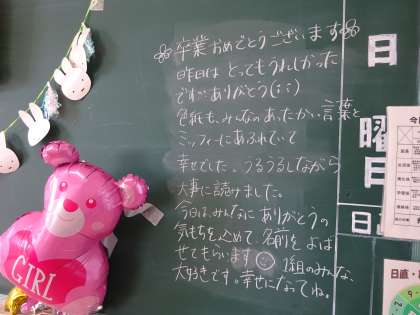 卒業おめでとうございます
昨日は とってもうれしかった
ですかありがとう(;;)
色紙も、みんなのあったかい言葉と
ミッフィーにあふれていて
幸せでした。うるうるしながら
大事に読みました。
今日は、みんなにありがとうの
気もちを込めて、名前をよば
せてもらいます 1組のみんな、
大好きです。幸せになってね。
日
曜
日
日直
GIRL
日直・